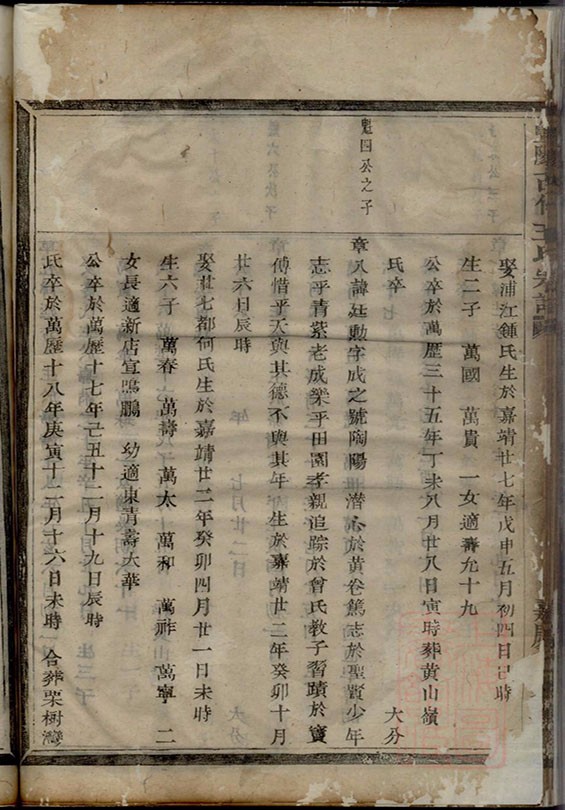 娶浦江鍾氏生於嘉靖廿七年戊申五月初四日巳時
生二子 萬國 萬貴 一女適壽允十九
公卒於萬歷三十五年丁未八月廿八日寅時葬黄山嶺
氏卒 大分
魁四公之子
章八諱廷勳字成之號陶陽 潜心於黄卷篤志於聖賢少年
志乎青紫老成樂乎田園孝親追踪於曾氏教子習蹟於竇
傅惜乎天與其德不與其年 生於嘉靖廿二年癸卯十月
廿六日辰時
娶廿七都何氏生於嘉靖廿二年癸卯四月廿一日未時
生六子 萬春 萬壽 萬太 萬和 萬祚 萬寧 二
女長適新店宣鵬 幼適東青壽大華
公卒於萬歷十七年己丑十二月十九日辰時
氏卒於萬歷十八年庚寅十二月十六日未時 合葬栗樹灣